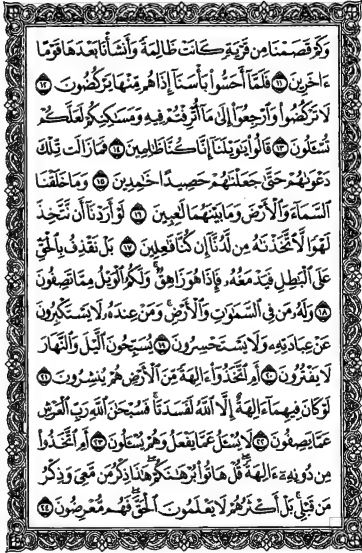 وَكَمْ قَصَمْنَا مِن قَرْيَةٍ كَانَتْ ظَالِمَةً وَأَنشَأْنَا بَعْدَهَا قَوْمًا
ءَاخَرِينَ ١١ فَلَمَّا أَحَسُّوا بَأْسَنَا إِذَا هُم مِّنْهَا يَرْكُضُونَ ١٢
لَا تَرْكُضُوا وَارْجِعُوا إِلَى مَا أُتْرِفْتُمْ فِيهِ وَمَسَكِنِكُمْ لَعَلَّكُمْ
تُسْـَٔلُونَ ١٣ قَالُوا يَوَيْلَنَا إِنَّا كُنَّا ظَالِمِينَ ١٤ فَمَا زَالَت تِّلْكَ
دَعْوَىهُمْ حَتَّى جَعَلْنَهُمْ حَصِيدًا خَمِدِينَ ١٥ وَمَا خَلَقْنَا
السَّمَآءَ وَالْأَرْضَ وَمَا بَيْنَهُمَا لَعِبِينَ ١٦ لَوْ أَرَدْنَا أَن نَّتَّخِذَ
لَهْوًا لَّاتَّخَذْنَهُ مِن لَّدُنَّا إِن كُنَّا فَعِلِينَ ١٧ بَلْ نَقْذِفُ بِالْحَقِّ
عَلَى الْبَطِلِ فَيَدْمَغُهُ فَإِذَا هُوَ زَاهِقٌ وَلَكُمُ الْوَيْلُ مِمَّا تَصِفُونَ
١٨ وَلَهُ مَن فِي السَّمَوَتِ وَالْأَرْضِ وَمَنْ عِندَهُ لَا يَسْتَكْبِرُونَ
عَنْ عِبَادَتِهِ وَلَا يَسْتَحْسِرُونَ ١٩ يُسَبِّحُونَ الَّيْلَ وَالنَّهَارَ
لَا يَفْتُرُونَ ٢٠ أَمِ اتَّخَذُوا ءَالِهَةً مِّنَ الْأَرْضِ هُمْ يُنشِرُونَ ٢١
لَوْ كَانَ فِيهِمَا ءَالِهَةٌ إِلَّا اللَّهُ لَفَسَدَتَا فَسُبْحَنَ اللَّهِ رَبِّ الْعَرْشِ
عَمَّا يَصِفُونَ ٢٢ لَا يُسْـَٔلُ عَمَّا يَفْعَلُ وَهُمْ يُسْـَٔلُونَ ٢٣ أَمِ اتَّخَذُوا
مِن دُونِهِ ءَالِهَةً قُلْ هَاتُوا بُرْهَنَكُمْ هَذَا ذِكْرُ مَن مَّعِيَ وَذِكْرُ
مَن قَبْلِي بَلْ أَكْثَرُهُمْ لَا يَعْلَمُونَ الْحَقَّ فَهُم مُّعْرِضُونَ ٢٤